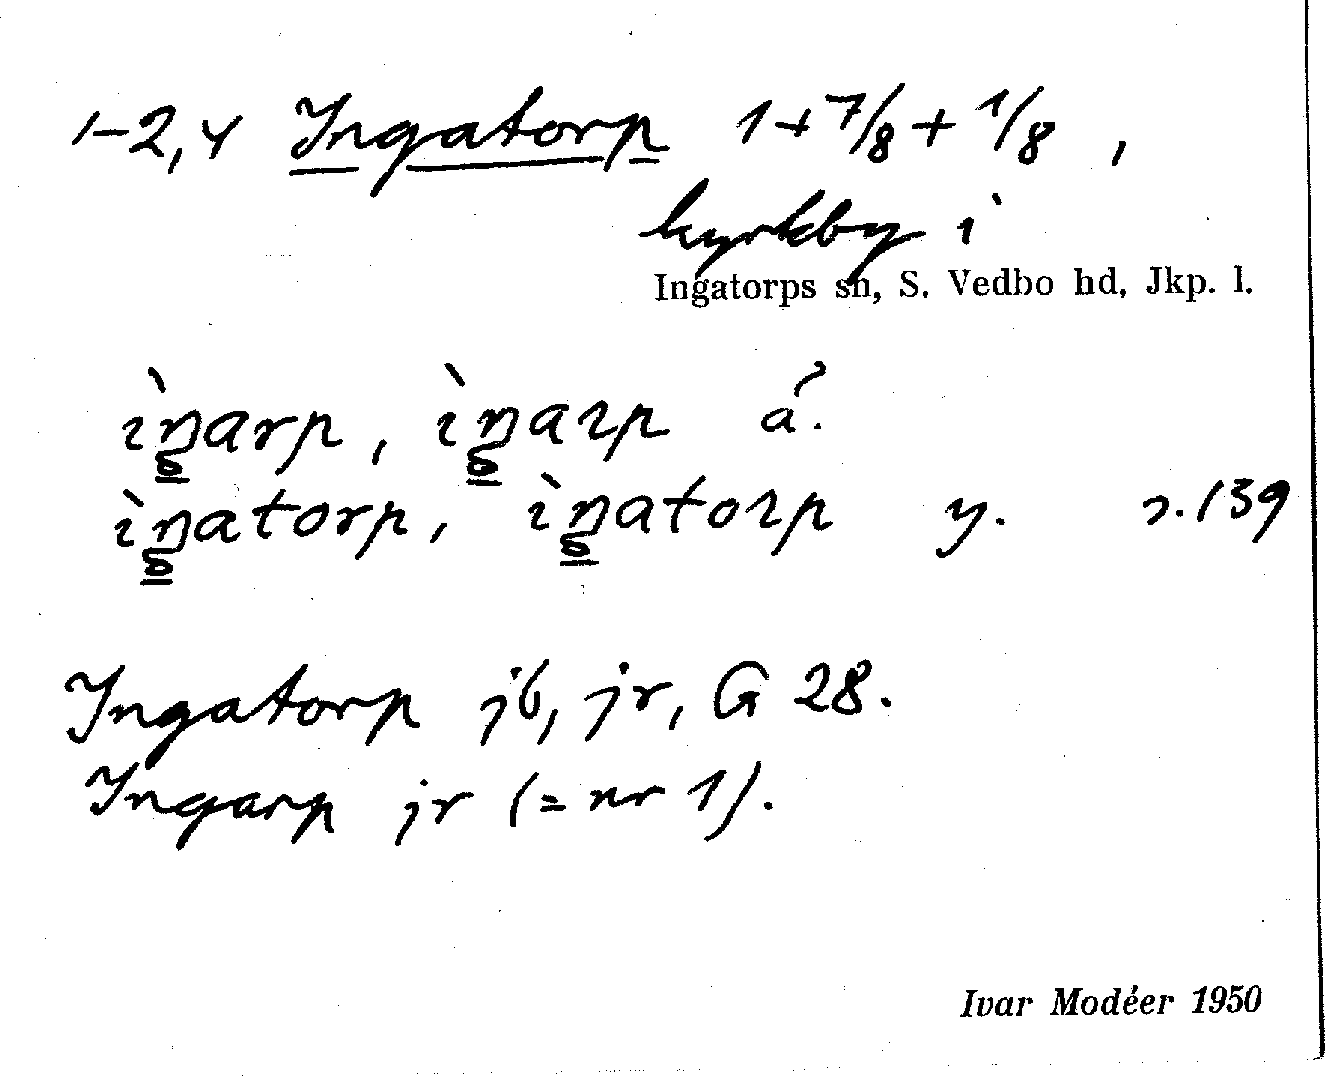 1-2, 4 Ingatorp 1+7/8+1/8,
kyrkby i
Ingatorps sn, S. Vedbo hd, Jkp. l.
ìŋarp, ìŋaɿp ä.
ìŋatorp, ìŋatoɿp y. s. 139
Ingatorp jb, jr, G 28.
Ingarp jr (= nr 1).
Ivar Modéer 1950